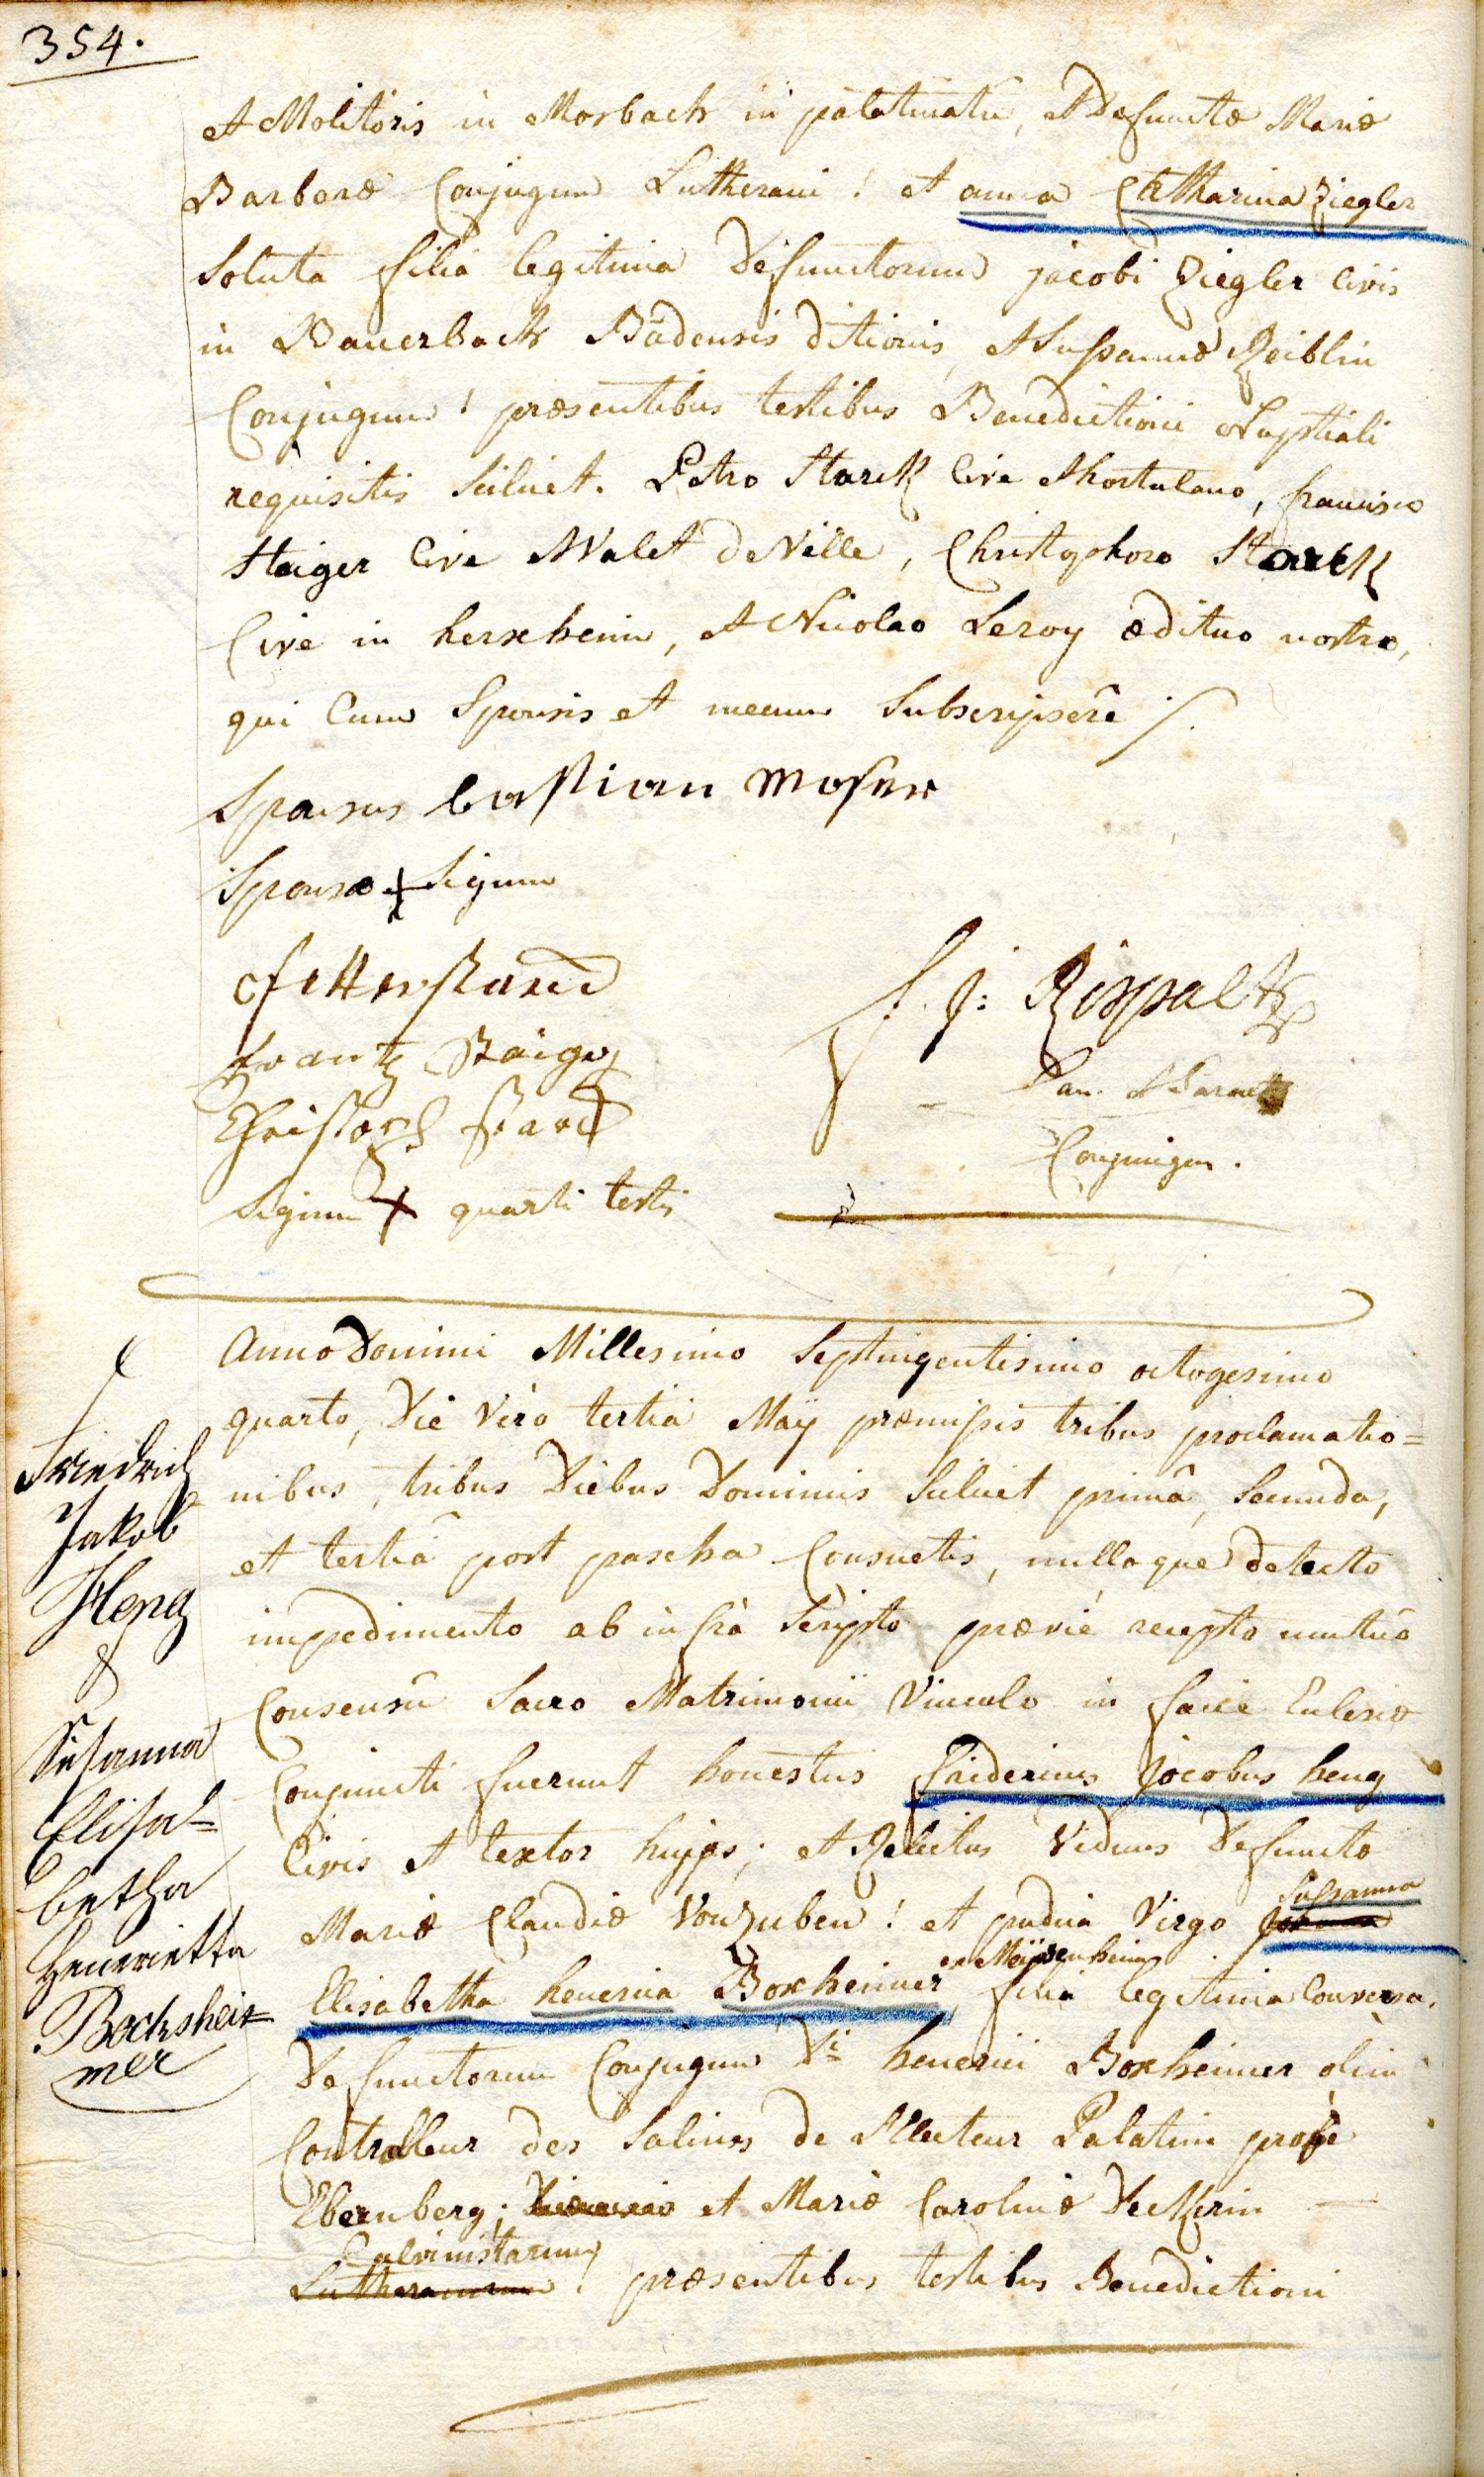 354.
et Molitoris in Morbach in palatinatu, et Defunctæ Mariæ
Barbaræ Conjugum Lutherani! et anna Catharina Ziegler
Soluta filia legitima Defunctorum jacobi Ziegler Civis
in Bauerbach Badensis ditionis, et Susannæ Reiblin
Conjugum! præsentibus testibus Benedictioni Nuptiali
requisitis Scilicet. Petro Starck Cive et hortulano, francisco
Staiger Cive et Valet de Ville, Christophoro Starck
Cive in herxheim, et Nicolao Leroy ædituo nostro,
qui Cum Sponsis et mecum Subscripsere ./.
Sponsus bastian Moser
Sponsæ + Signum
Petter starck
frantz Staiger
Christoph starck
Signum + quarti testis
f. j: Rispalt
Can. et Paroch
Conjungens.
Anno Domini Millesimo Septingentisimo octogesimo
quarto, Die Vero tertia Maÿ præmissis tribus proclamatio=
nibus, tribus Diebus Dominicis Scilicet primâ, Secunda,
et tertiâ post pascha Consuetis, nulloque detecto
impedimento ab infrà Scripto prævie recepto mutuo
Consensu Sacro Matrimonii Vinculo in facie Eclesiæ
Conjuncti fuerunt honestus fridericus jacobus heng
Civis et textor hujas; et Relictus Viduus Defunctæ
Mariæ Claudiæ Vonzuben! et pudica Virgo Susanna
Elisabetha henerica Boxheimer ex Meÿsenheim, filia legitima Conversa,
Defunctorum Conjugum Di henerici Boxheimer olim
Controlleur des Salines de l'Electeur Palatin prope
Ebernberg; et Mariæ Carolinæ Deckerin
Calvinistarum! præsentibus testibus Benedictioni
Friedrich
Jakob
Heng
&
Susanna
Elisa=
betha
Henrietta
Bocksheim=
mer